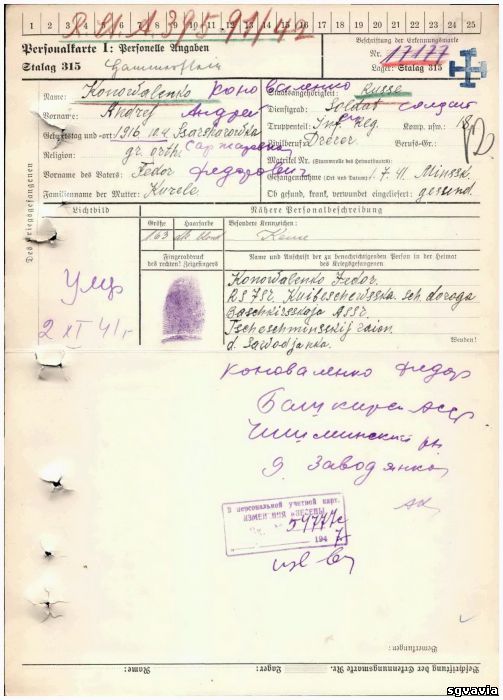 1 2 3 4 5 6 7 8 9 10 11 12 13 14 15 16 17 18 19 20 21 22 23 24 25
Personalkarte I: Personelle Angaben
Beschriftung der Erkennungsmarke
Nr. 17177
Stalag 315 Hammerstein
Lager: Stalag 315
Des Kriegsgefangenen
Name: Konowalenko Коноваленко
Staatsangehörigkeit: Russe
Vorname: Andrej Андрей
Dienstgrad: Soldat солдат
Geburtstag und -ort: 1916 10.4
Truppenteil: Inf. Reg. Komp. usw.: 18
Religion: gr. orth.
Zivilberuf: Berufs-Gr.:
Matrikel Nr. (Stammrolle des Heimatstaates):
Vorname des Vaters: Fedor Федорович
Gefangennahme (Ort und Datum): 1.7.41 Minssk.
Familienname der Mutter:
Ob gesund, krank, verwundet eingeliefert: gesund.
Lichtbild
Nähere Personalbeschreibung
Größe
Haarfarbe
Besondere Kennzeichen:
163
Keine
Fingerabdruck
des rechten! Zeigefingers
Name und Anschrift der zu benachrichtigenden Person in der Heimat
des Kriegsgefangenen
Konowalenko Fedor.
Kuibeschewsska. sch. doroga
Baschkirsskaja ASSR
Tscheschminsskij raion
d. Sawodjanka.
Wenden!
Умер
2 XI 41 г
Коноваленко Федор
Башкирск АССР
Чишминский рн
д Заводянка
В персональной учетной карт.
ИЗМЕНЕНИЯ ВНЕСЕНЫ
54777с
194 7
Bemerkungen:
Beschriftung der Erkennungsmarke Nr.
Lager:
Name:
sgvavia